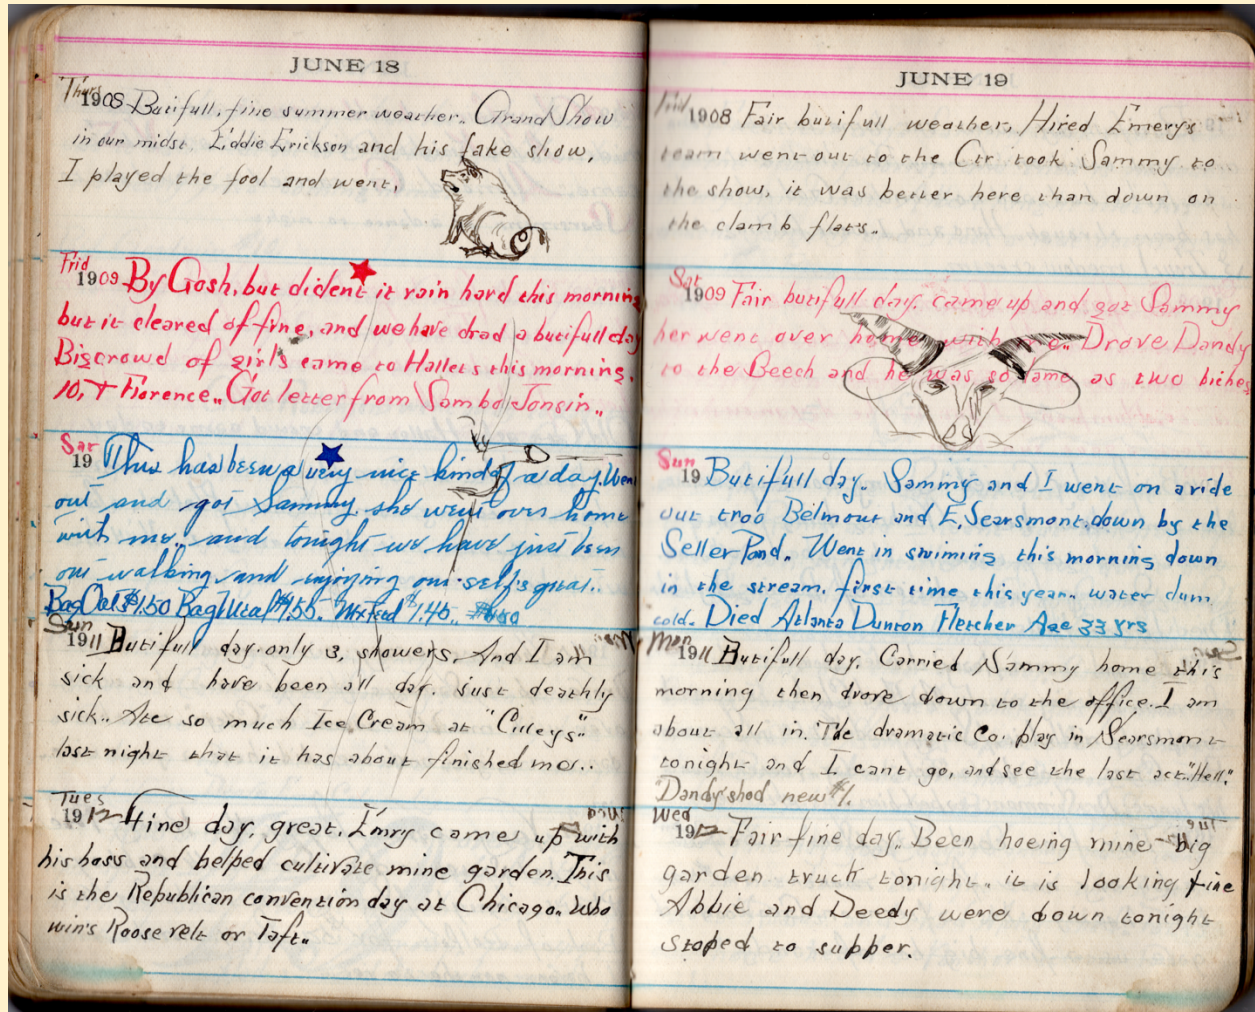 JUNE 18
Thurs
1908 Butifull, fine summer weather. Grand Show
in our midst. Eddie Erickson and his fake show,
I played the fool and went,
Frid
1909 By Gosh, but dident it rain hard this morning
but it cleared of fine, and we have drad a butifull day
Big crowd of girls came to Hallets this morning.
10, + Florence.. Got letter from Sambo Jonsin..
Sat
19 This has been a very nice kinda a day. Went
out and got Sammy. she went over home
with me.. and tonight we have just been
out walking and enjoying our self's great..
Bag Oats $1.50 Bag Meal $1.55. Mix feed $1.45..
Sun
1911 Butifull day. only 3, showers. And I am
sick and have been all day. just deathly
sick.. Ate so much Ice Cream at "Cilleys"
last night that it has about finished me..
Tues
1912 Fine day, great. Emry came up with
his hoss and helped cultivate mine garden. This
is the Republican convention day at Chicago. Who
win's Roosevelt or Taft..
JUNE 19
Frid
1908 Fair butifull weather. Hired Emerys
team went out to the Ctr took Sammy to
the show, it was better here than down on
the clamb flats..
Sat
1909 Fair butifull day. came up and got Sammy
her went over home with me.. Drove Dandy
to the Beech and he was so tame as two biches
Sun
19 Butifull day. Sammy and I went on a ride
out troo Belmont and E, Searsmont, down by the
Seller Pond. Went in swiming this morning down
in the stream. first time this year. water dum
cold. Died Atlanta Dunton Fletcher Age 33 yrs
Mon
1911 Butifull day. Carried Sammy home this
morning then drove down to the office. I am
about all in. The dramatic Co. play in Searsmont
tonight and I cant go, and see the last act. "Hell".
Dandy shod new #1.
Wed
1912 Fair fine day. Been hoeing mine big
garden truck tonight. it is looking fine
Abbie and Deedy were down tonight
stoped to supper.